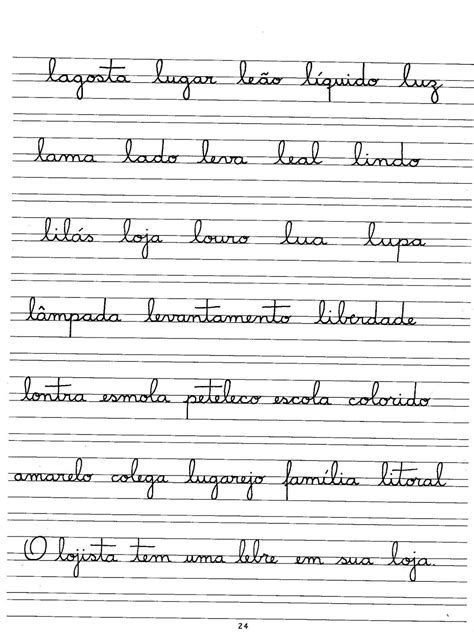 lagosta lugar leão líquido luz
lama lado leva leal lindo
lilás loja louro lua lupa
lâmpada levantamento liberdade
lontra esmola peteleco escola colorido
amarelo colega lugarejo família litoral
O lojista tem uma lebre em sua loja.
24